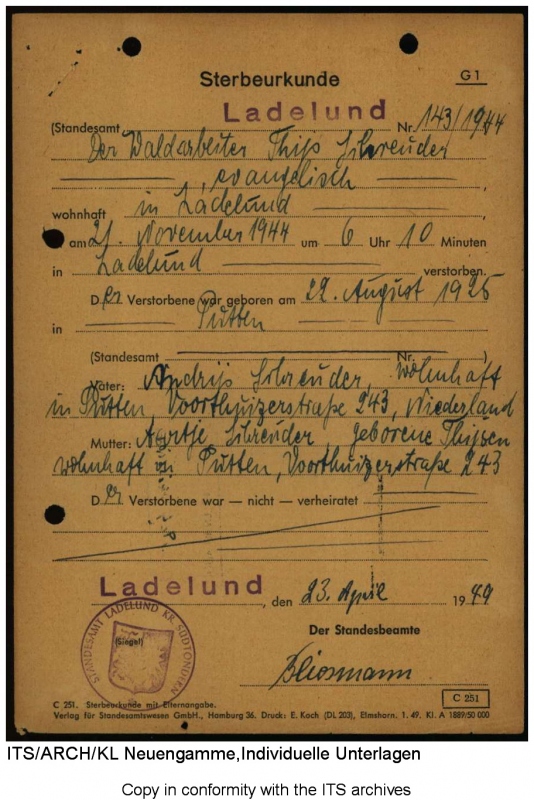 Sterbeurkunde
G 1
(Standesamt Ladelund Nr. 143/1944
Der Waldarbeiter Thijs Schreuder
, evangelisch ,
wohnhaft in Ladelund ,
am 21. November 1944 um 6 Uhr 10 Minuten
in Ladelund verstorben.
Der Verstorbene war geboren am 22. August 1925
in Putten
(Standesamt Nr. )
Vater: Andrijs Schreuder, wohnhaft
in Putten, Voorthuizerstraße 243, Niederland
Mutter: Aartje Schreuder, geborene Thijsen
wohnhaft in Putten, Voorthuizerstraße 243
Der Verstorbene war — nicht — verheiratet
Ladelund, den 23. April 1949
Der Standesbeamte
(Siegel)
STANDESAMT LADELUND KR. SÜDTONDERN
C 251. Sterbeurkunde mit Elternangabe.
C 251
Verlag für Standesamtswesen GmbH., Hamburg 36. Druck: E. Koch (DL 203), Elmshorn. 1. 49. Kl. A 1889/50 000
ITS/ARCH/KL Neuengamme,Individuelle Unterlagen
Copy in conformity with the ITS archives